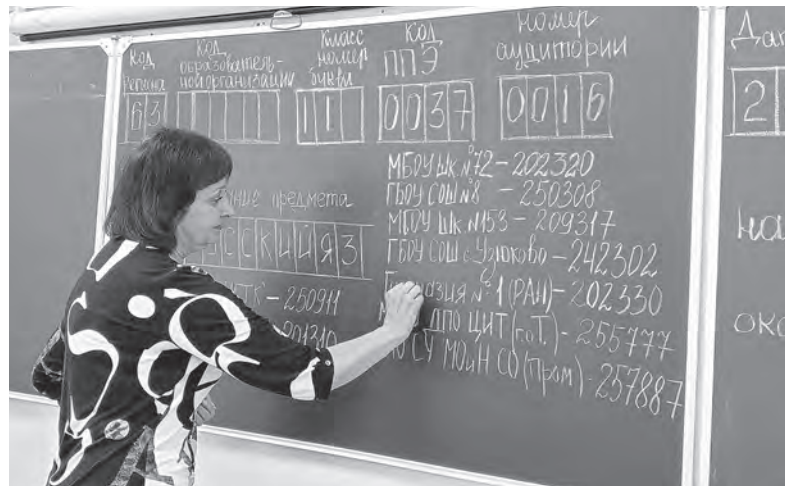 Код региона
63
Код образователь-
ной организации
Класс
номер
буква
11
Код
ППЭ
0037
номер
аудитории
0016
Дат
2
предмета
ССКИЙ ЯЗ
МБОУ шк. №72 – 202320
ГБОУ СОШ №8 – 250308
МБОУ шк. №153 – 209317
ГБОУ СОШ с. Узюково – 242302
№1 (РАН) – 202330
ДПО ЦИТ (г.о.Т.) – 255777
СУ МОиН СО (Пром) – 257887
ТК – 250911
на
око